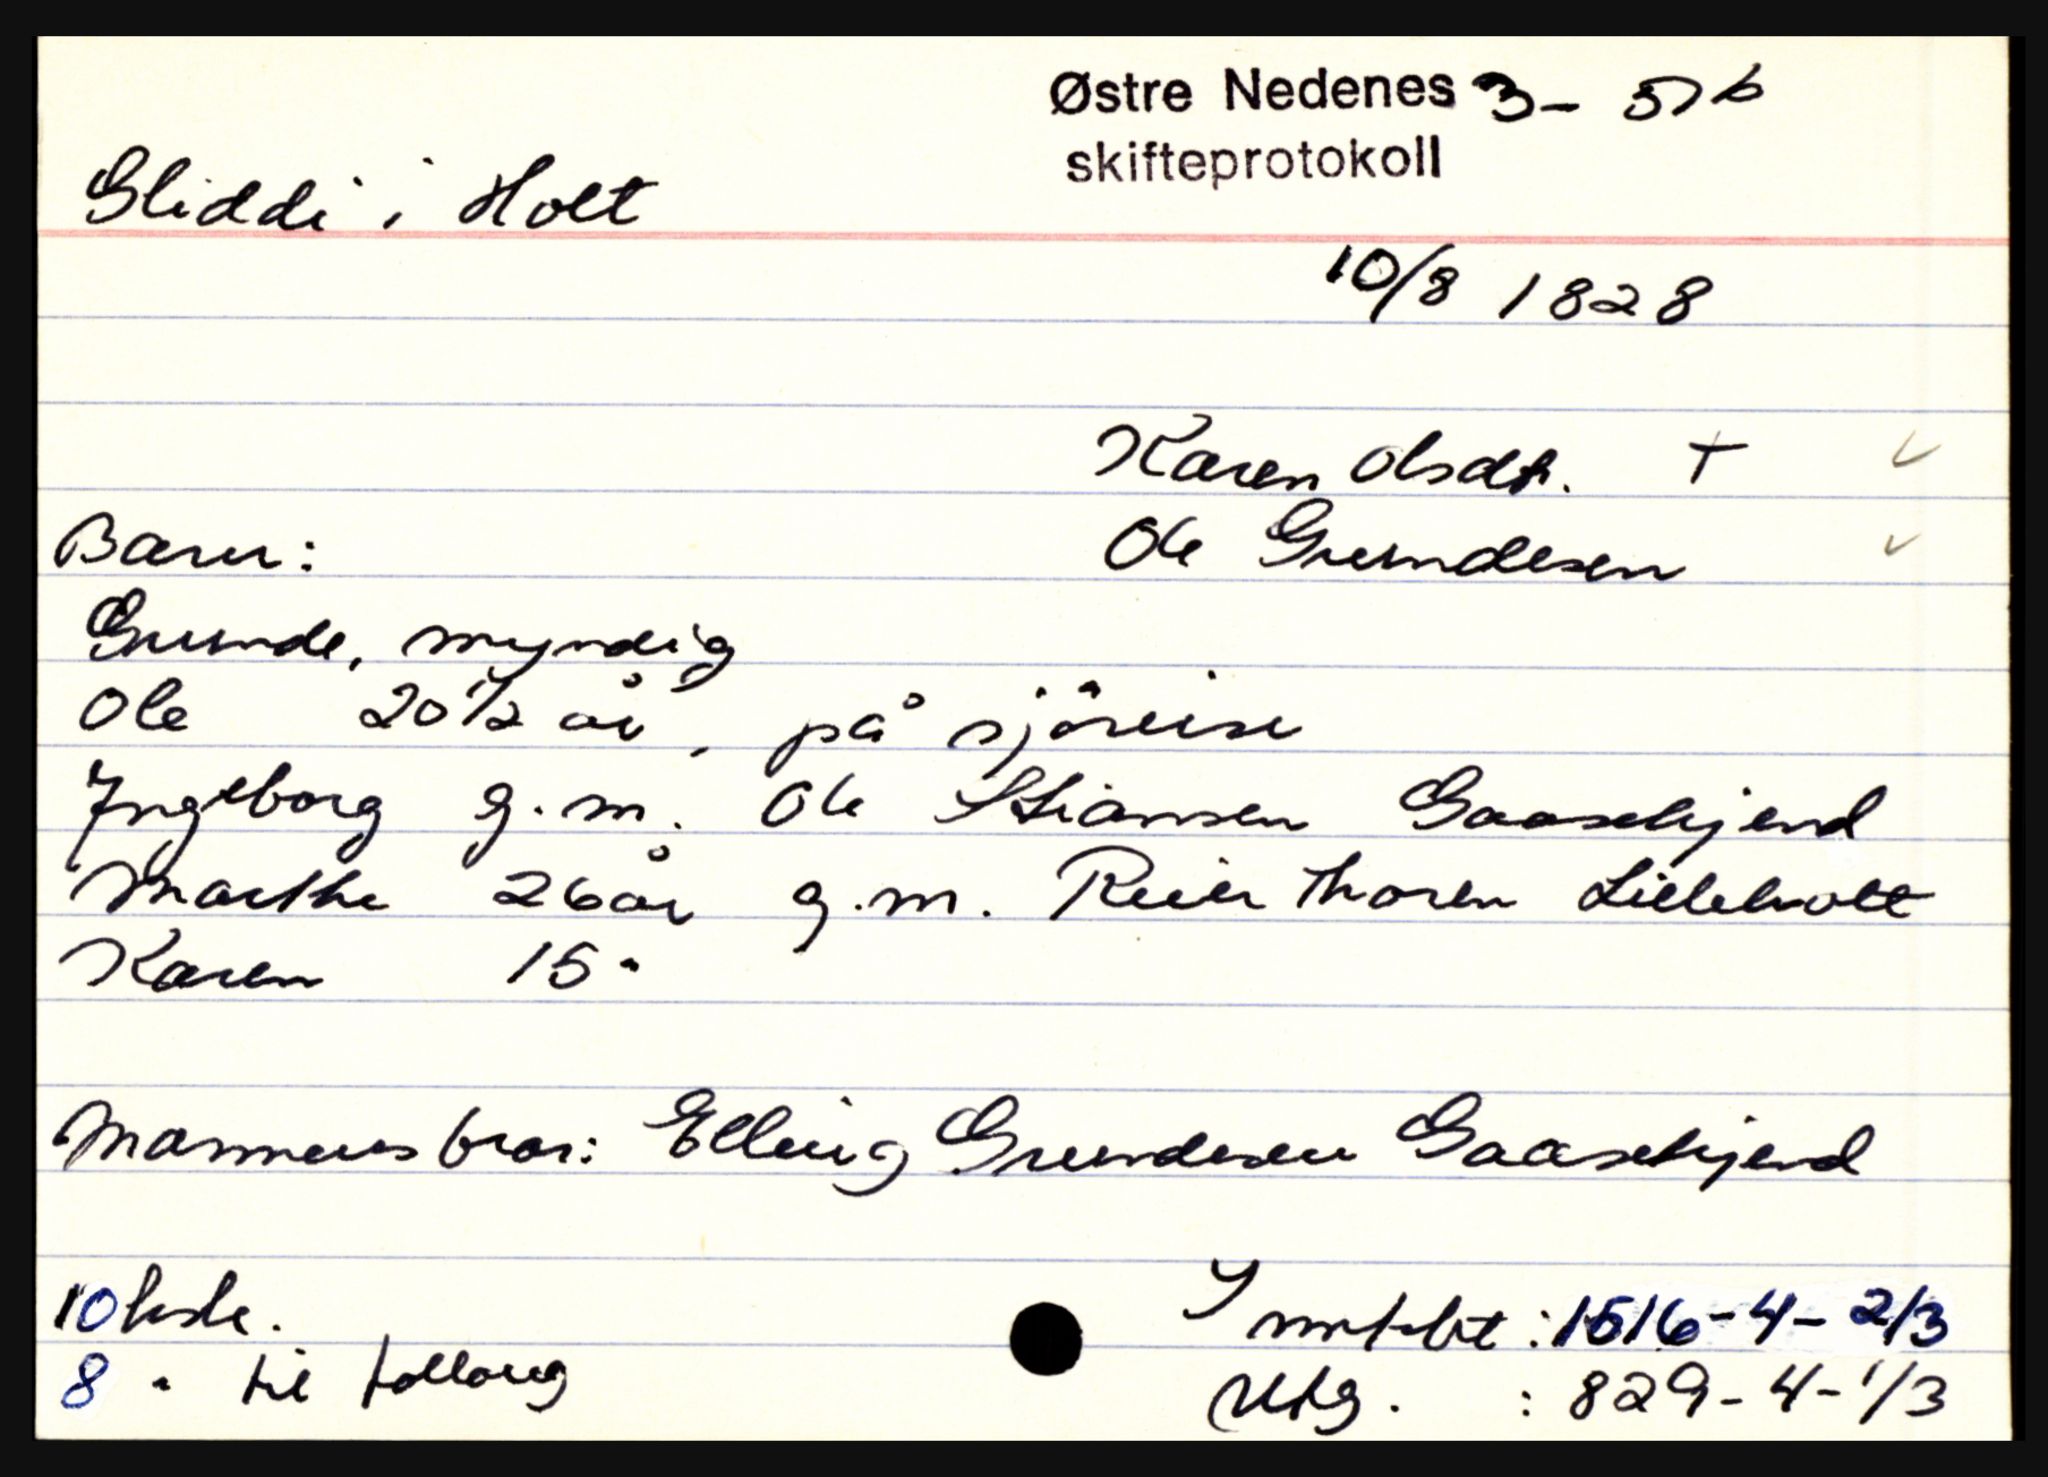 Østre Nedenes 3- 51b
skifteprotokoll
Gliddi i Holt
10/8 1828
Karen Olsdt. † ✓
Barn: Ole Grundesen ✓
Grunde, myndig
Ole 20 1/2 år, på sjøreise
Ingeborg g.m. Ole Stiansen Gaasekjend
Marthe 26 år g.m. Reier Thorsen Lilleholt
Karen 15 "
Mannens bror: Elling Grundesen Gaasekjend
10 : 1516-4-2/3
8 " til Utg. : 829-4-1/3